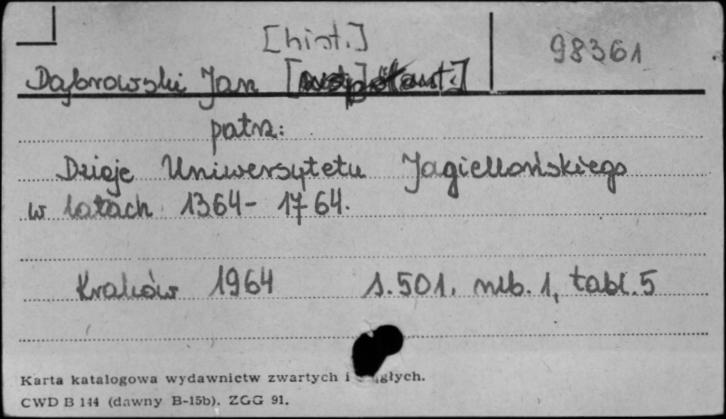 [hist.]
98361
Dąbrowski Jan [współaut.]
patrz:
Dzieje Uniwersytetu Jagiellońskiego
w latach 1364-1764.
Kraków 1964 s.501. nlb. 1, tabl. 5
Karta katalogowa wydawnictw zwartych i
CWD B 144 (dawny B-15b). ZGG 91.